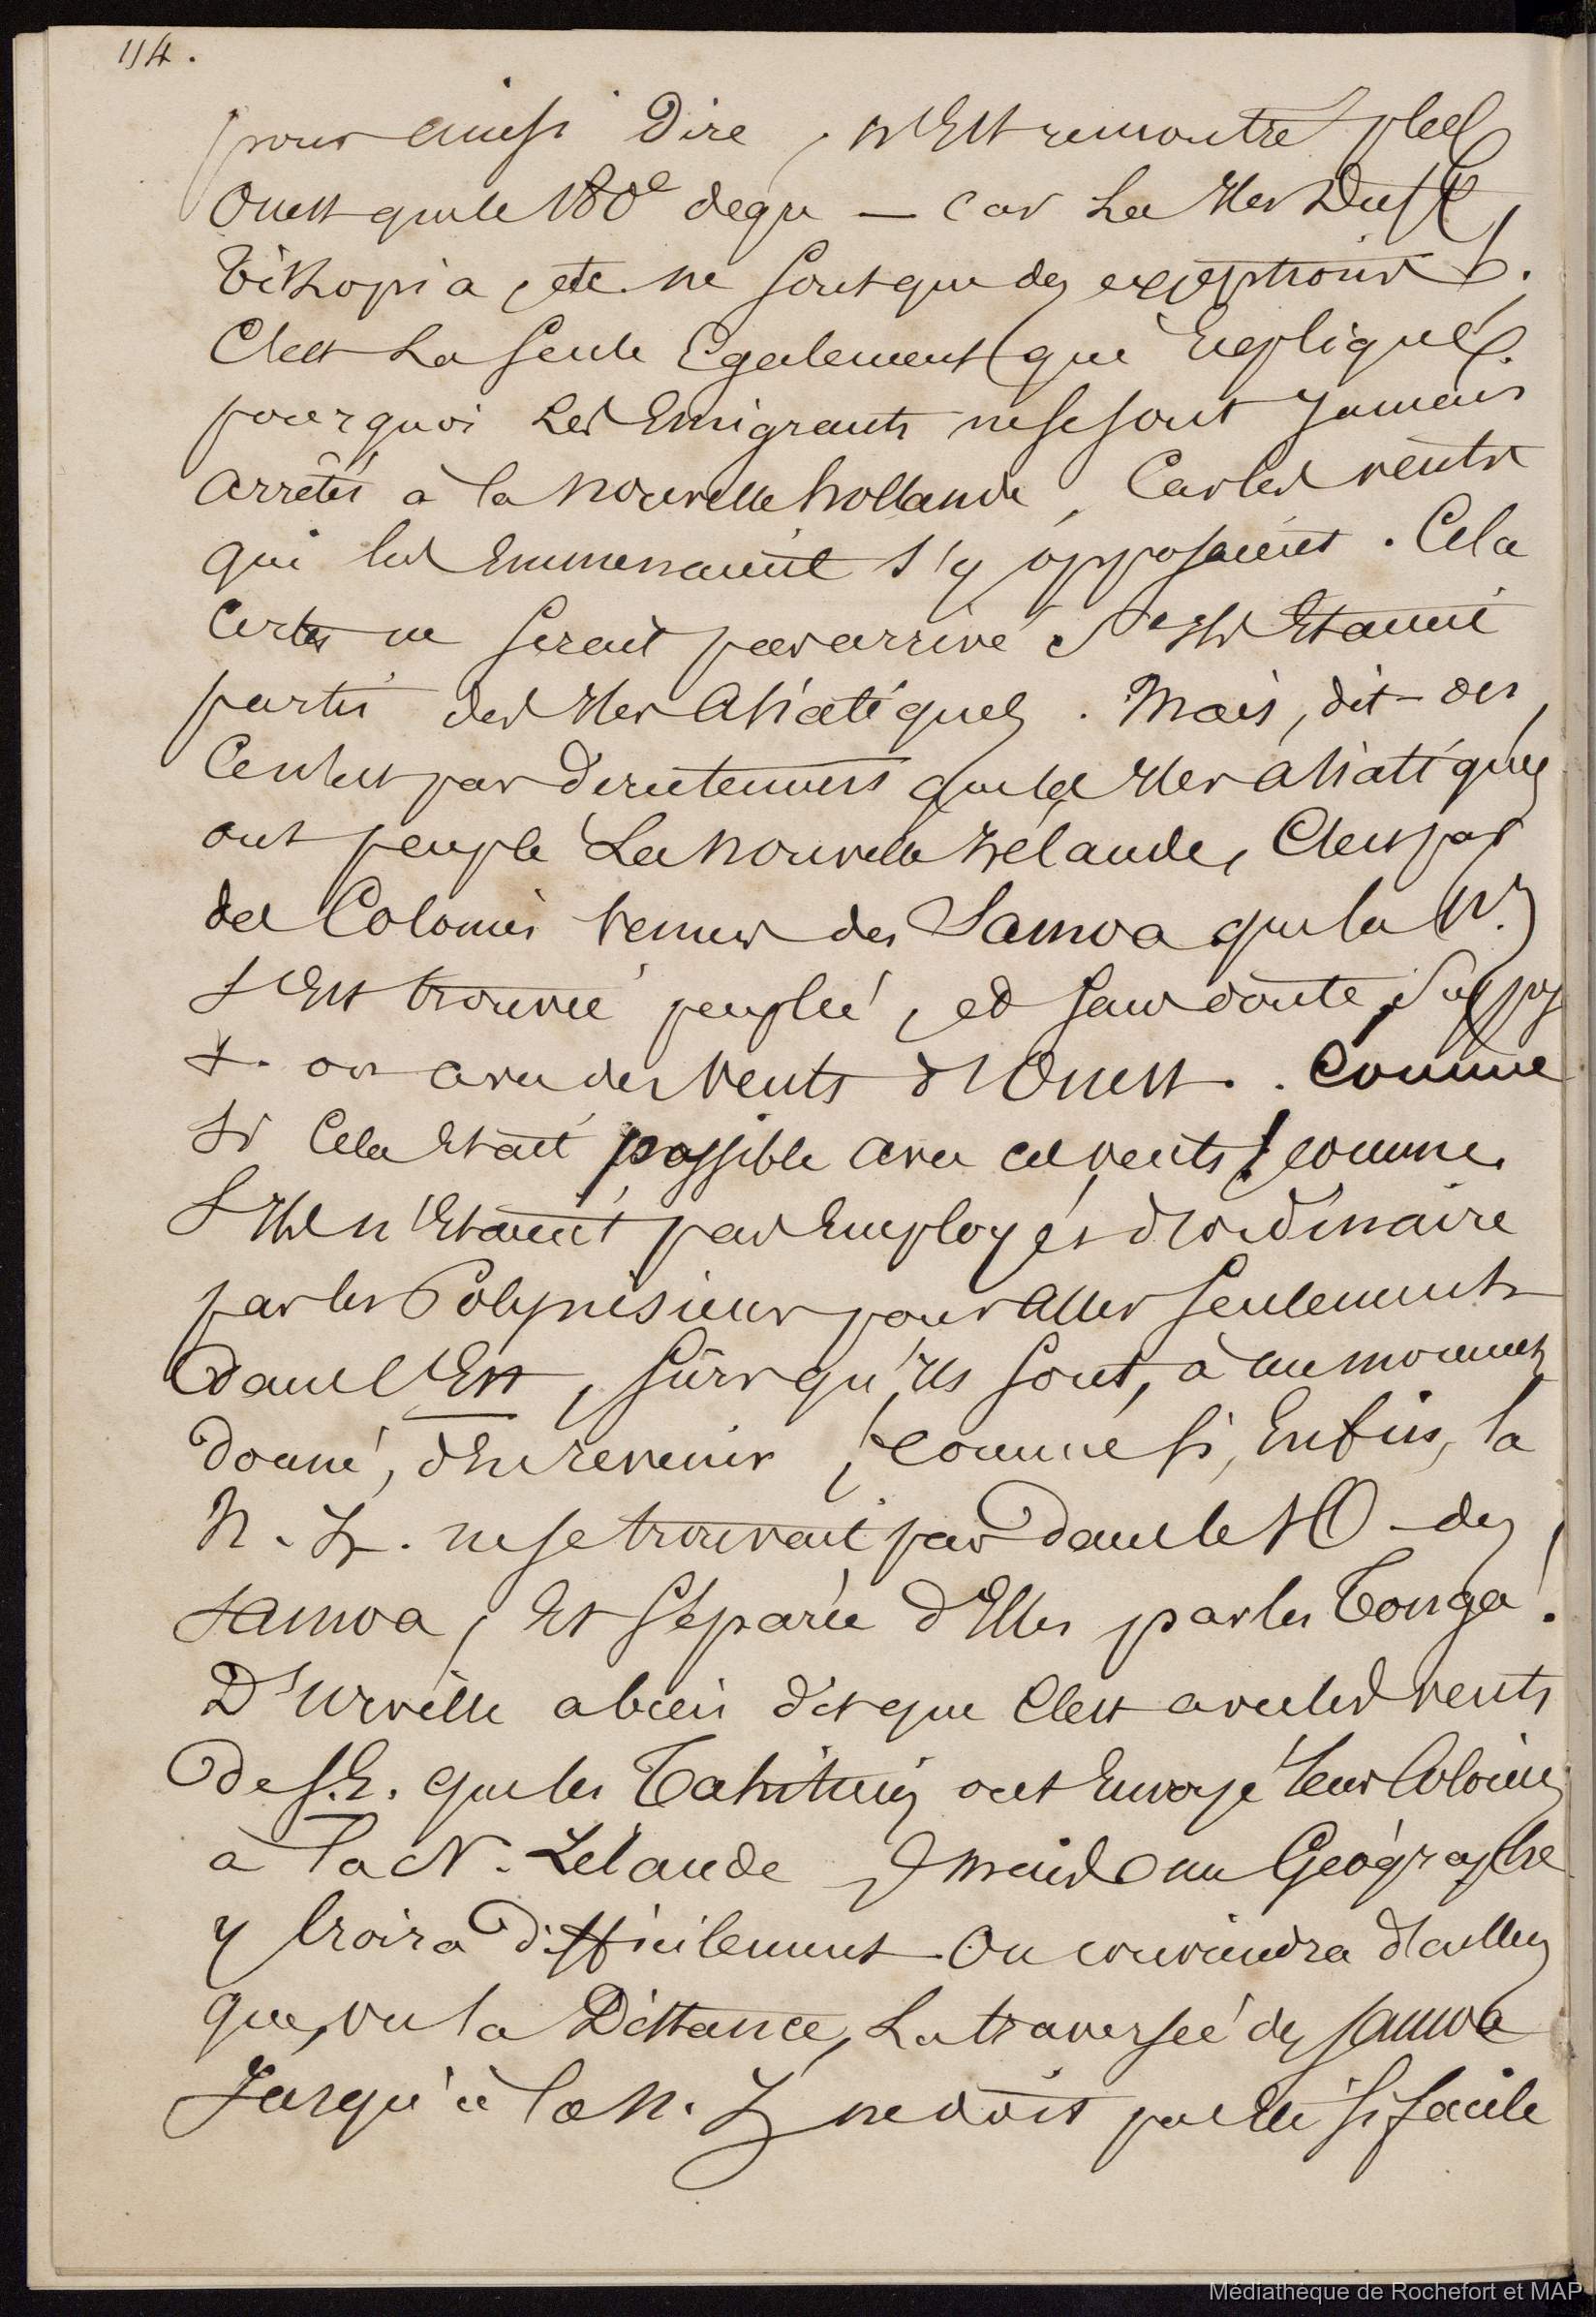 114.
pour ainsi Dire, n'Est remontré plus
Ouest que le 180e degré — car Les Iles Duff,
Tikopia, etc. ne sont que des exceptions.
C'est La seule Egalement qui Explique
pourquoi Les Emigrants ne se sont Jamais
arrêtés à la Nouvelle hollande, Car les vents
qui les Emmenaient s'y opposaient. Cela
Certes ne serait pas arrivé s'Ils Etaient
partis des Iles Asiatiques. Mais, dit-on,
Ce n'est pas Directement que les Iles asiatiques
ont peuplé La Nouvelle Zélande, C'est par
des Colonies venues des Samoa que la N. Z.
s'Est trouvée peuplée, et sans doute,
+. on avec des Vents d'Ouest. . Comme
si Cela Etait possible avec ces vents! comme
s'Ils n'Etaient pas Employés d'ordinaire
par les Polynésiens pour aller seulement
Dans l'Est, sûrs qu'Ils sont, à un moment
Donné, d'En revenir! comme si, Enfin, la
N. Z. ne se trouvait pas Dans le SO des
Samoa, Et séparée d'Elles par les Tonga!.
D'Urville a bien dit que C'est avec les vents
De S.E. que les Tahitiens ont Envoyé leurs Colonies
à la N. Zélande mais un Géographe
y Croira Difficilement. On conviendra d'aills
que, vu la Distance, La traversée des Samoa
Jusqu'à la N. Z ne doit pas Etre si facile
Médiathèque de Rochefort et MAP